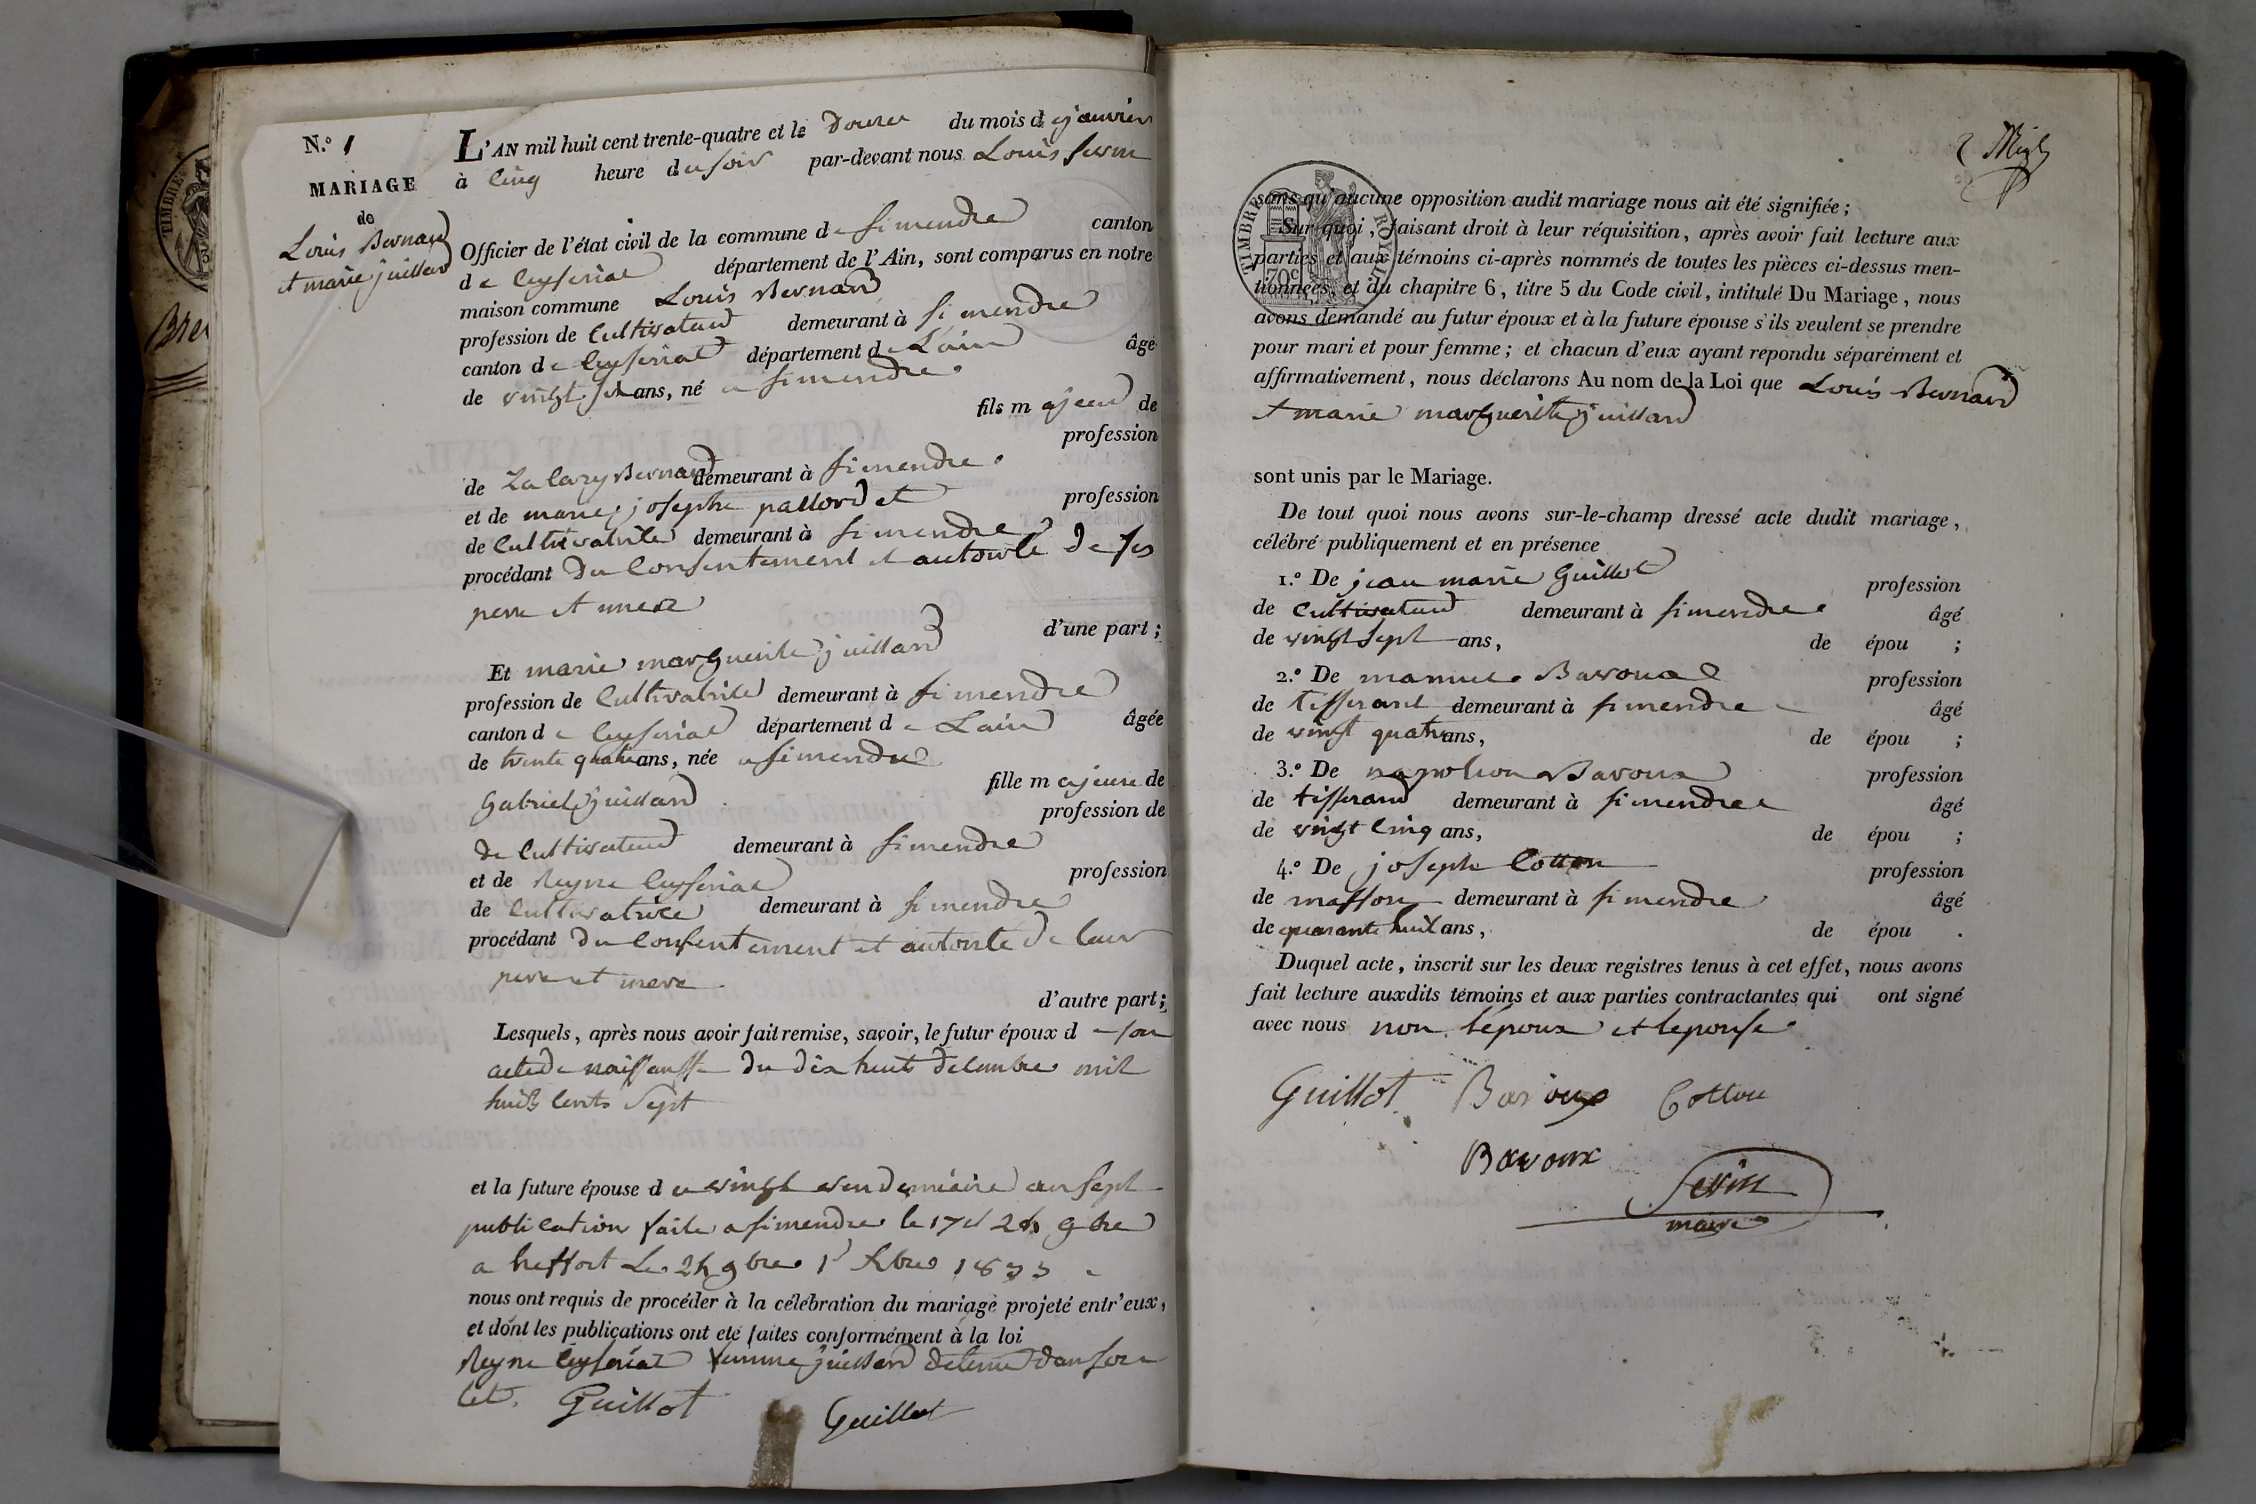 N.º 1
MARIAGE
de
Louis Bernard
et marie juillard
L'AN mil huit cent trente-quatre et le douze du mois de janvier
à cinq heure du soir par-devant nous Louis Sevin
Officier de l'état civil de la commune de simendre canton
de Ceyseriat département de l'Ain, sont comparus en notre
maison commune Louis Bernard
profession de Cultivateur demeurant à simendre
canton de Ceyseriat département de Lain âgé
de vingt six ans, né a simendre
fils majeur de
profession
de Zacary Bernard demeurant à simendre
et de marie josephe pallord et profession
de Cultivatrice demeurant à simendre
procédant du Consentement et autorité de ses
pere et mere
d'une part;
Et marie marguerite juillard
profession de Cultivatrice demeurant à simendre
canton de Ceyseriat département de Lain âgée
de trente quatre ans, née a simendre
fille majeure de
Gabriel juillard profession de
de Cultivateur demeurant à simendre
et de Reyne Ceyseriat profession
de Cultivatrice demeurant à simendre
procédant du Consentement et autorité de leur
pere et mere
d'autre part;
Lesquels, après nous avoir fait remise, savoir, le futur époux de son
acte de naissansse du dix huit decembre mil
huit cents sept
et la future épouse du vingt vendemiaire an sept
publication faite a simendre le 17 et 24 9bre
a treffort Le 24 9bre 1r Xbre 1833
nous ont requis de procéder à la célébration du mariage projeté entr'eux,
et dont les publications ont été faites conformément à la loi
Reyne Ceyseriat femme juillard
Guillot Guillot
TIMBRE
Bre
sans qu'aucune opposition audit mariage nous ait été signifiée;
Sur quoi, faisant droit à leur réquisition, après avoir fait lecture aux
parties et aux témoins ci-après nommés de toutes les pièces ci-dessus men-
tionnées, et du chapitre 6, titre 5 du Code civil, intitulé Du Mariage, nous
avons demandé au futur époux et à la future épouse s'ils veulent se prendre
pour mari et pour femme; et chacun d'eux ayant repondu séparément et
affirmativement, nous déclarons Au nom de la Loi que Louis Bernard
et marie marguerite juillard
sont unis par le Mariage.
De tout quoi nous avons sur-le-champ dressé acte dudit mariage,
célébré publiquement et en présence
1.º De jean marie Guillot profession
de Cultivateur demeurant à simendre âgé
de vingt sept ans, de épou ;
2.º De Bavoux profession
de tisserant demeurant à simendre âgé
de vingt quatre ans, de épou ;
3.º De napoleon Bavoux profession
de tisserand demeurant à simendre âgé
de vingt cinq ans, de épou ;
4.º De joseph Cotton profession
de masson demeurant à simendre âgé
de quarante huit ans, de épou .
Duquel acte, inscrit sur les deux registres tenus à cet effet, nous avons
fait lecture auxdits témoins et aux parties contractantes qui ont signé
avec nous non lepoux et lepouse
Guillot Bavoux Cotton
Bavoux
Sevin
maire
TIMBRE ROYAL
70c